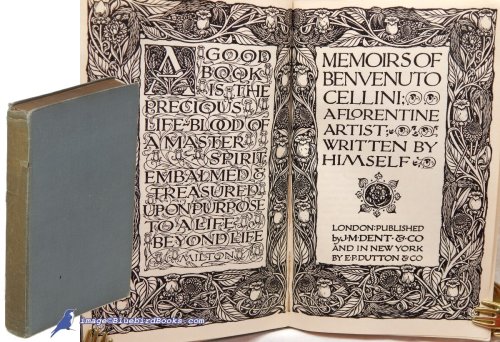 A GOOD
BOOK
IS THE
PRECIOUS
LIFE-BLOOD OF
A MASTER
SPIRIT,
EMBALMED &
TREASURED
UPON PURPOSE
TO A LIFE
BEYOND LIFE
MILTON
MEMOIRS OF
BENVENUTO
CELLINI:
A FLORENTINE
ARTIST;
WRITTEN BY
HIMSELF
LONDON: PUBLISHED
by J·M·DENT·&·CO
AND IN NEW YORK
BY E·P·DUTTON & CO
image@BluebirdBooks.com